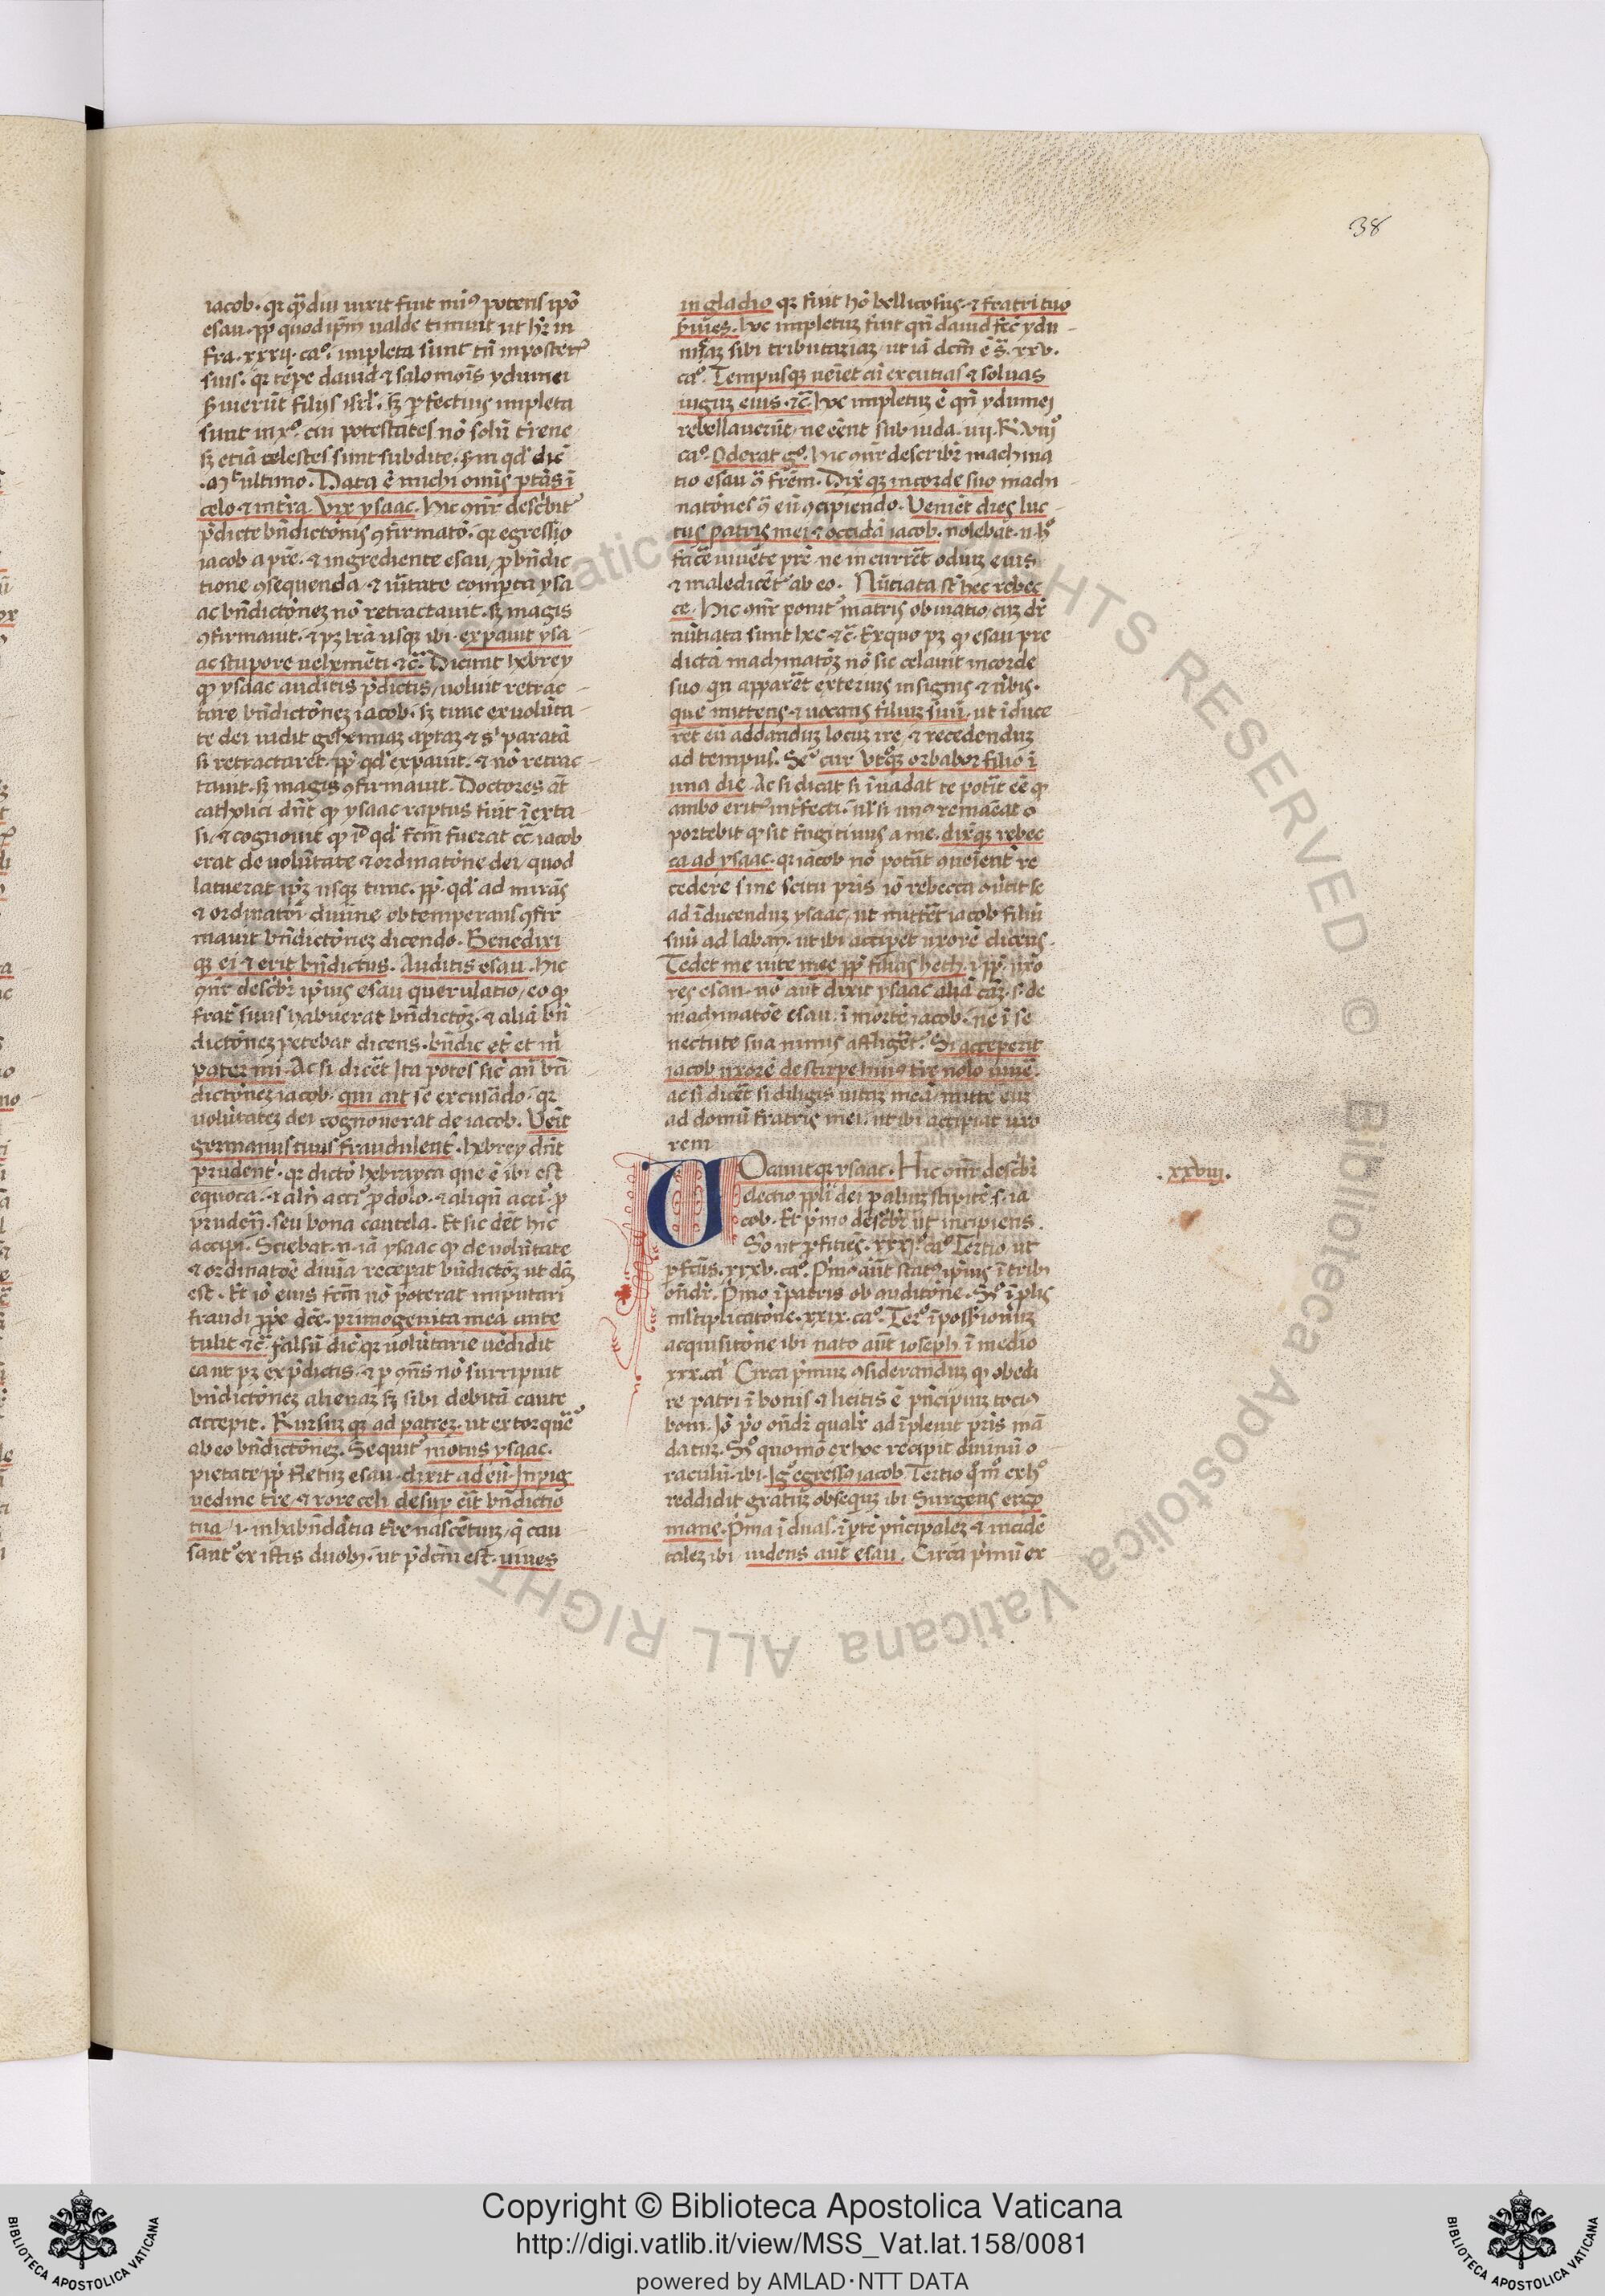 38
iacob. qr q̃diu uixit fuit minꝰ potens ipõ
esau. ꝓp̃ quod ip̃m ualde timuit ut hr̃ in
fra. xxxij. caº. impleta sunt tñ in posterꝭ
suis. qr tẽpe dauid ⁊ salomõis ydumei
ẜuierũt filijs isrl̃. sꝫ ꝑfectius impleta
sunt in xº. cui potestates nõ solũ terrene
sꝫ etiã celestes sunt subdite. ẜm qd̃ dic̃
.Mᵗ ultimo. Data ẽ michi omĩs ptãs ĩ
celo ⁊ in tr̃a. Vix ysaac. Hic ↄñr describitᷣ
p̃dicte bñdictõnis ↄfirmatõ. qr egressio
iacob a pr̃e. ⁊ ingrediente esau ꝓ bñdic
tione ↄsequenda ⁊ ũitate compta ysa
ac bñdictõneꝫ nõ retractauit. sꝫ magis
ↄfirmauit. ⁊ pꝫ lr̃a usqꝫ ibi. expauit ysa
ac stupore uehemẽti ⁊c̃. Dicunt hebrey
ꝙ ysaac auditis p̃dictis uoluit retrac
tare bñdictõneꝫ iacob. sꝫ tunc ex uolũta
te dei uidit gehennaꝫ aptaꝫ ⁊ sⁱ paratã
si retractaret. ꝓp̃ qd̃ expauit. ⁊ nõ retrac
tauit. sꝫ magis ↄfirmauit. Doctores aũt
catholici dñt ꝙ ysaac raptus fuit ĩ exta
si. ⁊ cognouit ꝙ id qd̃ fcm̃ fuerat cͨ iacob
erat de uolũtate ⁊ ordinatõne dei. quod
latuerat ip̃ꝫ usqꝫ tunc. ꝓp̃ qd̃ admirãs
⁊ ordinatõi diuine obtemperans ↄfir
mauit bñdictõneꝫ dicendo. Benedixi
qꝫ ei ⁊ erit bñdictus. Auditis esau. Hic
ↄñr describr̃ ipĩus esau querulatio. eo ꝙ
frat̃ suus habuerat bñdictõꝫ. ⁊ aliã bñ
dictõneꝫ petebat dicens. bñdic et̃ et m̃
pater mi. Ac si dicẽt Ita potes sic̃ añ bñ
dictõneꝫ iacob. qui ait se excusãdo. qr
uolũtateꝫ dei cognouerat de iacob. Veĩt
germanus tuus fraudulent̃. hebrey dñt
prudent̃. qr dictõ hebrayca que ẽ ibi est
equoca. ⁊ alñ accĩ ꝓ dolo. ⁊ aliqñ accĩ ꝓ
prudeñ. seu bona cautela. Et sic dẽt hic
accipi. Sciebat. n. iã ysaac ꝙ de uolũtate
⁊ ordinatõe diuĩa receperat bñdictõꝫ ut dc̃ꝫ
est. Et iõ eius fcm̃ nõ poterat imputari
fraudi ꝓp̃e dc̃e. primogenita mea ante
tulit ⁊c̃. falsũ dic̃ qr uolũtarie uẽdidit
ea ut pꝫ ex p̃dictis. ⁊ ꝑ ↄñs nõ surripuit
bñdictõneꝫ alienaꝫ sꝫ sibi debitã caute
accepit. Rursuꝫ qꝫ ad patreꝫ. ut extorqũẽ
ab eo bñdictõneꝫ. Sequitᷣ motus ysaac.
pietate ꝓp̃ fletuꝫ esau. dixit ad eũ. In pig
uedine tr̃e. ⁊ rore celi desup̃ eĩt bñdictio
tua. i. in habũdãtia tr̃e nascẽtiuꝫ. q̃ cau
santᷣ ex istis duobꝫ. ut p̃dcm̃ est. uiues
in gladio qꝫ fuit hõ bellicosus. ⁊ fratri tuo
ẜuĩes. hoc impletuꝫ fuit qñ dauid fec̃ ydu
meaꝫ sibi tributariaꝫ. ut iã dcm̃ ẽ s̃. xxv.
caº. Tempusqꝫ ueĩet cũ excutias ⁊ soluas
iuguꝫ eius. ⁊c̃. hoc impletuꝫ ẽ qñ ydumei
rebellauerũt. ne eẽnt sub iuda. iiij. R. viijº
caº. Oderat gº. Hic ↄñr describr̃ machina
tio esau ꝯ̃ frẽm. Dixqꝫ in corde suo machi
natõnes ꝯ̃ eũ ↄcipiendo. Veniẽt dies luc
tus patris mei. ⁊ occidã iacob. nolebat. n. hº
facẽ uiuẽte pr̃e ne incurrẽt odiuꝫ eius
⁊ maledicẽtᷣ ab eo. Nũciata st̃ hec rebec
ce. Hic ↄñr ponitᷣ matris obuiatio. cuꝫ dr̃
nũtiata sunt hec ⁊c̃. Ex quo pꝫ ꝙ esau pre
dictã machinatõꝫ nõ sic celauit in corde
suo. qn apparẽt exterius in signis ⁊ ũbis.
que mittens ⁊ uocans filiuꝫ suũ. ut ĩduce
ret eũ ad danduꝫ locuꝫ ire. ⁊ recedenduꝫ
ad tempus. Seº cur ut̃qꝫ orbabor filio ĩ
una die. Ac si dicat si ĩuadat te potĩt eẽ ꝙ
ambo eritᷣ int̃fecti. ul̃ si unꝰ remãeat o
portebit ꝙ sit fugitiuus a me. dixitqꝫ rebec
ca ad ysaac. qr iacob nõ potãt ↄueĩent̃ re
cedere sine scitu pris iõ rebecca ↄũtit se
ad ĩducenduꝫ ysaac. ut mittẽt iacob filiũ
suũ ad laban. ut ibi accipet uxorẽ dicens.
Tedet me uite mee ꝓp̃ filias heth. ⁊ ꝓp̃. uxo
res esau. nõ aũt dixit ysaac aliã cãꝫ. s. de
machinatõe esau. ĩ mortẽ iacob. ne ĩ se
nectute sua nimis affligẽtᷣ. Si acceperit
iacob uxorẽ de stirpe huiꝰ tr̃e nolo uiuẽ.
ac si dicẽt si diligis uitaꝫ meã. mitte euꝫ
ad domũ fratris mei. ut ibi accipiat uxo
rem
VOcauitqꝫ ysaac. Hic ↄñr describr̃
electio ppl̃i dei ꝑ aliuꝫ stipitẽ. s. ia
cob. Et p̃mo describr̃ ut incipiens.
Sº ut ꝓficiẽs. xxxjº. caº. Tertio ut
ꝑfcũs. xxxv. caº. Pͥmo aũt statꝰ ipĩus ĩ tribꝫ
oñdr̃. Pͥmo ĩ patris obauditõne. Sº ĩ ꝓlis
ml̃tiplicatõne. xxix. caº. Terº ĩ possessionuꝫ
acquisitõne ibi nato aũt ioseph. ĩ medio
xxx. caⁱ. Circa p̃muꝫ ↄsideranduꝫ ꝙ obedi
re patri ĩ bonis ⁊ licitis ẽ pñcipiuꝫ tociꝰ
boni. Iõ pͦ oñdr̃ qualr̃ adĩpleuit pris mã
datuꝫ. Sº quomõ ex hoc recipit diuinũ o
raculũ. ibi. Igº egressꝰ iacob. Tertio qͦm̃ ex hº
reddidit gratuꝫ obsequiꝫ ibi Surgens ergo
mane. Pͥma ĩ duas. ĩ ꝑtẽ pñcipaleꝫ ⁊ incidẽ
taleꝫ ibi. uidens aũt esau. Circa p̃mũ ex
.xxviij.
Copyright © Biblioteca Apostolica Vaticana
http://digi.vatlib.it/view/MSS_Vat.lat.158/0081
powered by AMLAD·NTT DATA